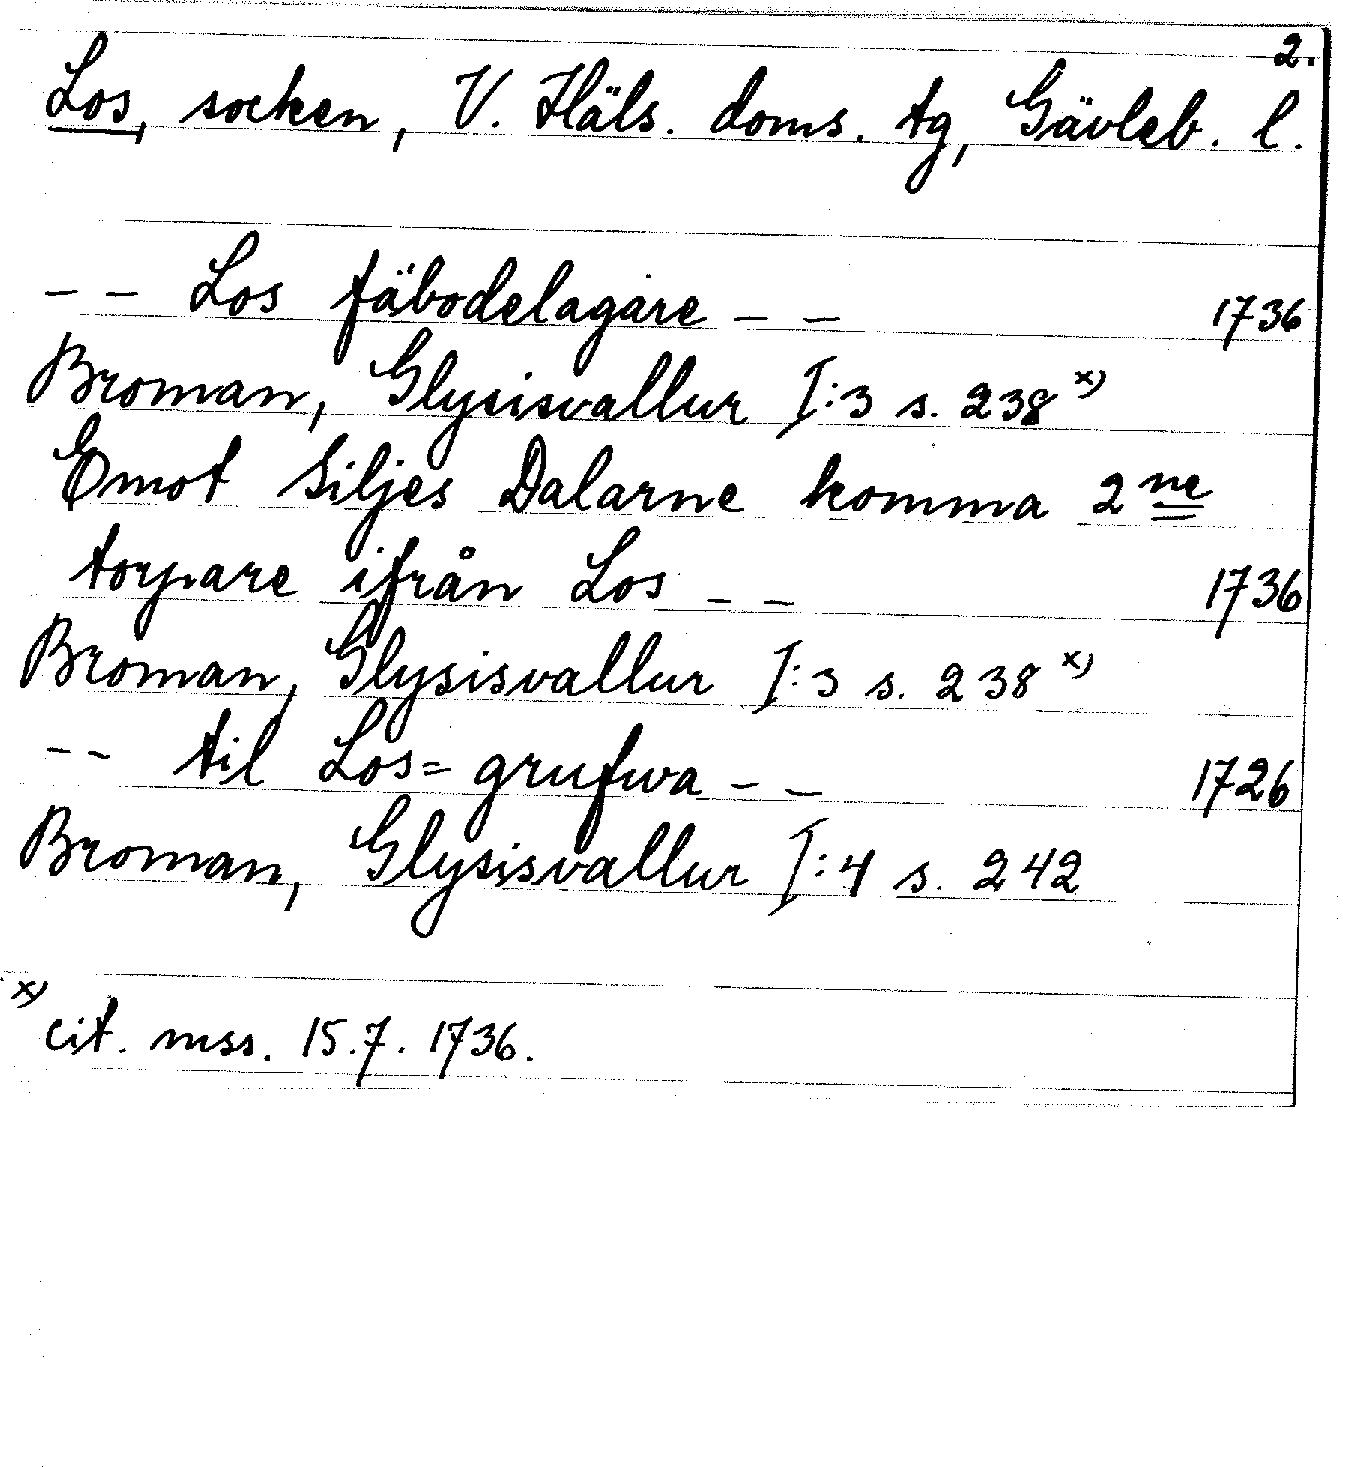 2.
Los, socken, V. Häls. doms. tg, Gävleb. l.
- - Los fäbodelagare - - 1736
Broman, Glysisvallur I:3 s. 238 x)
Emot Siljes Dalarne komma 2ne
torpare ifrån Los - - 1736
Broman, Glysisvallur I:3 s. 238 x)
- - til Los= grufwa - - 1726
Broman, Glysisvallur I:4 s. 242
x) cit. mss. 15.7. 1736.